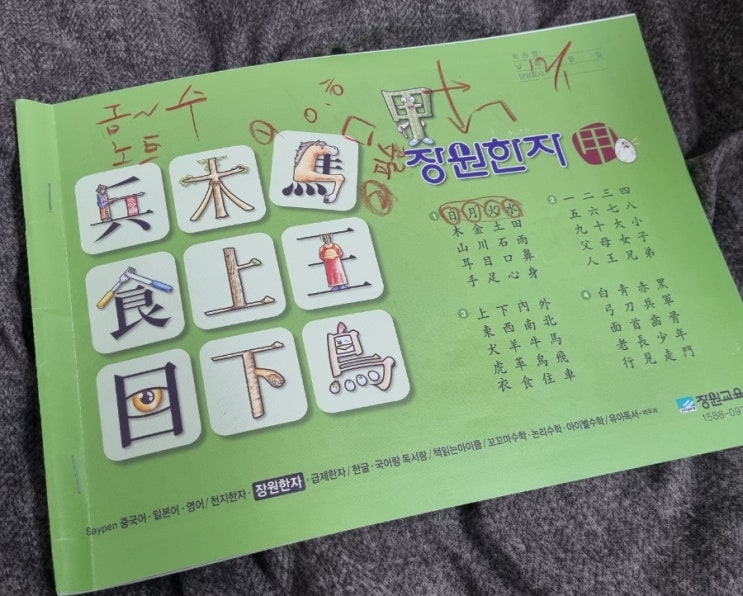 회원명
월 일
담당교사
금~수
노트
장원한자 甲
兵 木 馬
食 上 王
目 下 鳥
① 日 月 火 水
木 金 土 田
山 川 石 雨
耳 目 口 鼻
手 足 心 身
② 一 二 三 四
五 六 七 八
九 十 大 小
父 母 女 子
人 王 兄 弟
③ 上 下 內 外
東 西 南 北
犬 羊 牛 馬
虎 革 鳥 飛
衣 食 住 車
④ 白 靑 赤 黑
弓 刀 兵 軍
面 首 齒 骨
老 長 少 年
行 見 走 門
장원교육
1588-09
Saypen 중국어 · 일본어 · 영어 / 천지한자 · 장원한자 · 급제한자 / 한글 · 국어랑 독서랑 / 책읽는아이들 / 꼬꼬마수학 · 논리수학 · 아이별수학 / 유아독서